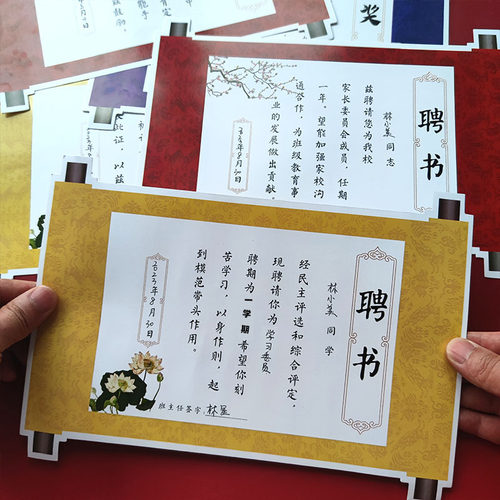 聘书
林小美 同学
经民主评选和综合评定，
现聘请你为学习委员
聘期为一学期希望你刻
苦学习，以身作则，起
到模范带头作用。
班主任签字：林蓝
2023年8月30日
聘书
林小美 同志
兹聘请您为我校
家长委员会成员，任期
一年。望能加强家校沟
通合作，为班级教育事
业的发展做出贡献。
2023年8月30日
奖